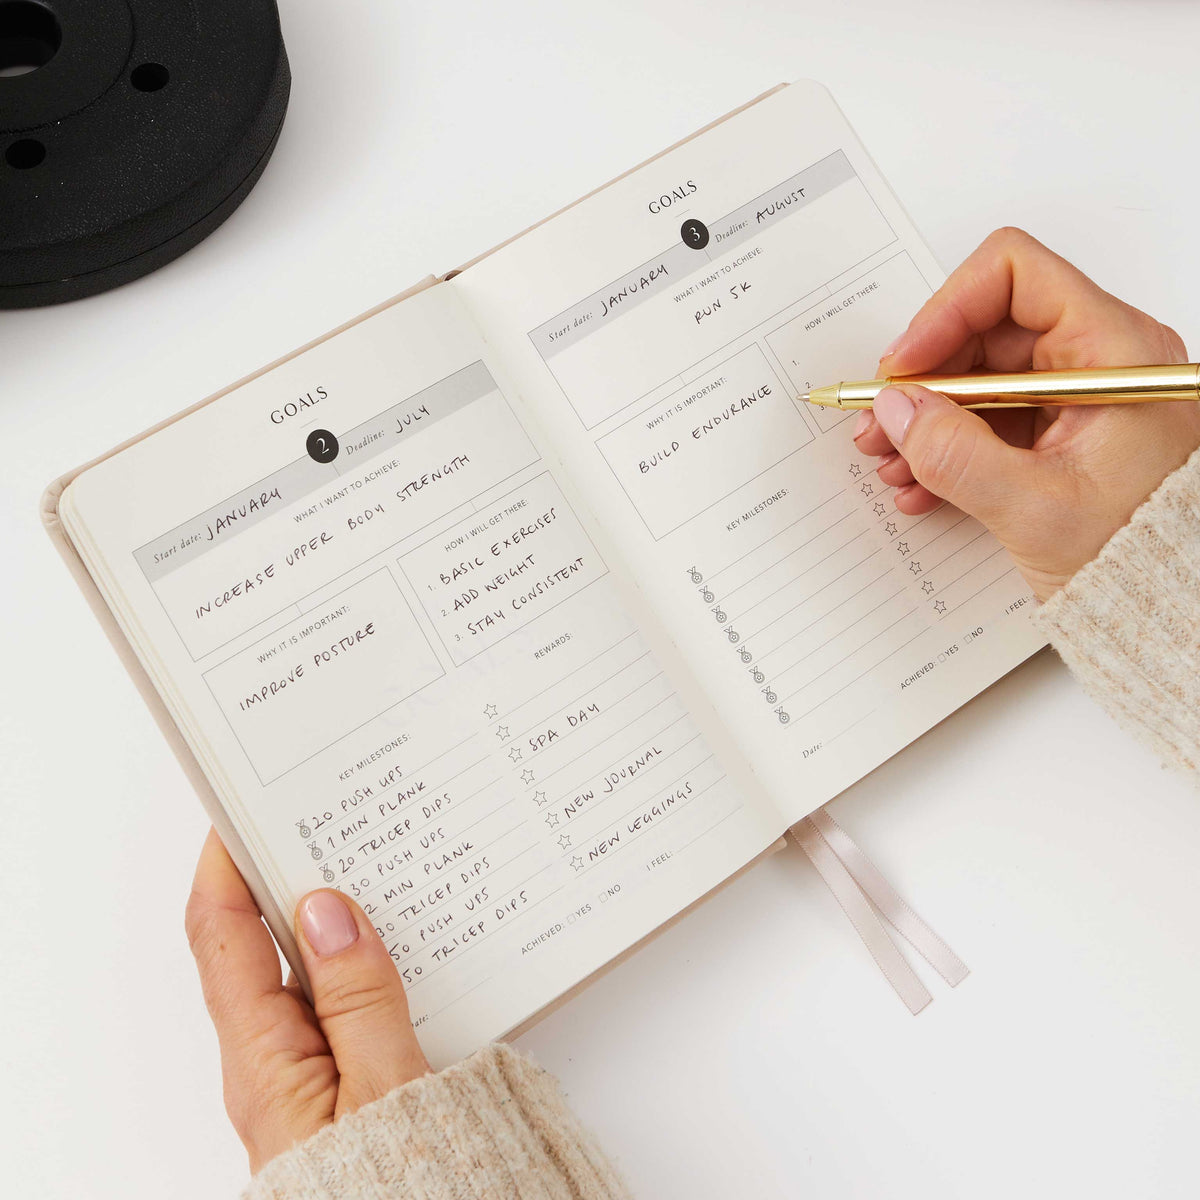 GOALS
2
Start date: JANUARY
Deadline: JULY
WHAT I WANT TO ACHIEVE:
INCREASE UPPER BODY STRENGTH
WHY IT IS IMPORTANT:
IMPROVE POSTURE
HOW I WILL GET THERE:
1. BASIC EXERCISES
2. ADD WEIGHT
3. STAY CONSISTENT
KEY MILESTONES:
20 PUSH UPS
1 MIN PLANK
20 TRICEP DIPS
30 PUSH UPS
2 MIN PLANK
30 TRICEP DIPS
50 PUSH UPS
50 TRICEP DIPS
REWARDS:
SPA DAY
NEW JOURNAL
NEW LEGGINGS
ACHIEVED: YES NO
I FEEL:
GOALS
3
Start date: JANUARY
Deadline: AUGUST
WHAT I WANT TO ACHIEVE:
RUN 5K
WHY IT IS IMPORTANT:
BUILD ENDURANCE
HOW I WILL GET THERE:
1.
2.
3.
KEY MILESTONES:
Date:
ACHIEVED: YES NO
I FEEL: